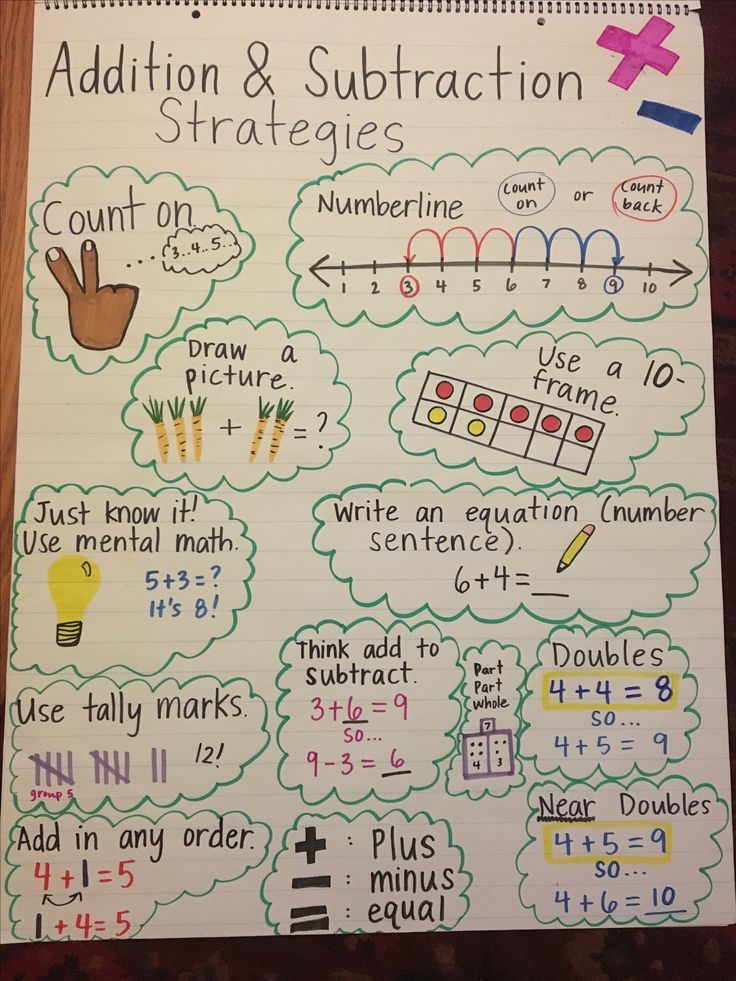 Addition & Subtraction
Strategies
Count on
...
3..4..5...
Numberline
Count
on
or
Count
back
1 2 3 4 5 6 7 8 9 10
Draw a
picture.
+ = ?
Use a 10-
frame.
Just know it!
Use mental math.
5+3=?
It's 8!
Write an equation (number
sentence).
6+4=__
Think add to
subtract.
3+6=9
so...
9-3=6
Part
Part
whole
7
4 3
Doubles
4+4=8
so...
4+5=9
Use tally marks.
12!
group 5
Near Doubles
4+5=9
so...
4+6=10
Add in any order.
4+1=5
1+4=5
+ : Plus
- : minus
= : equal